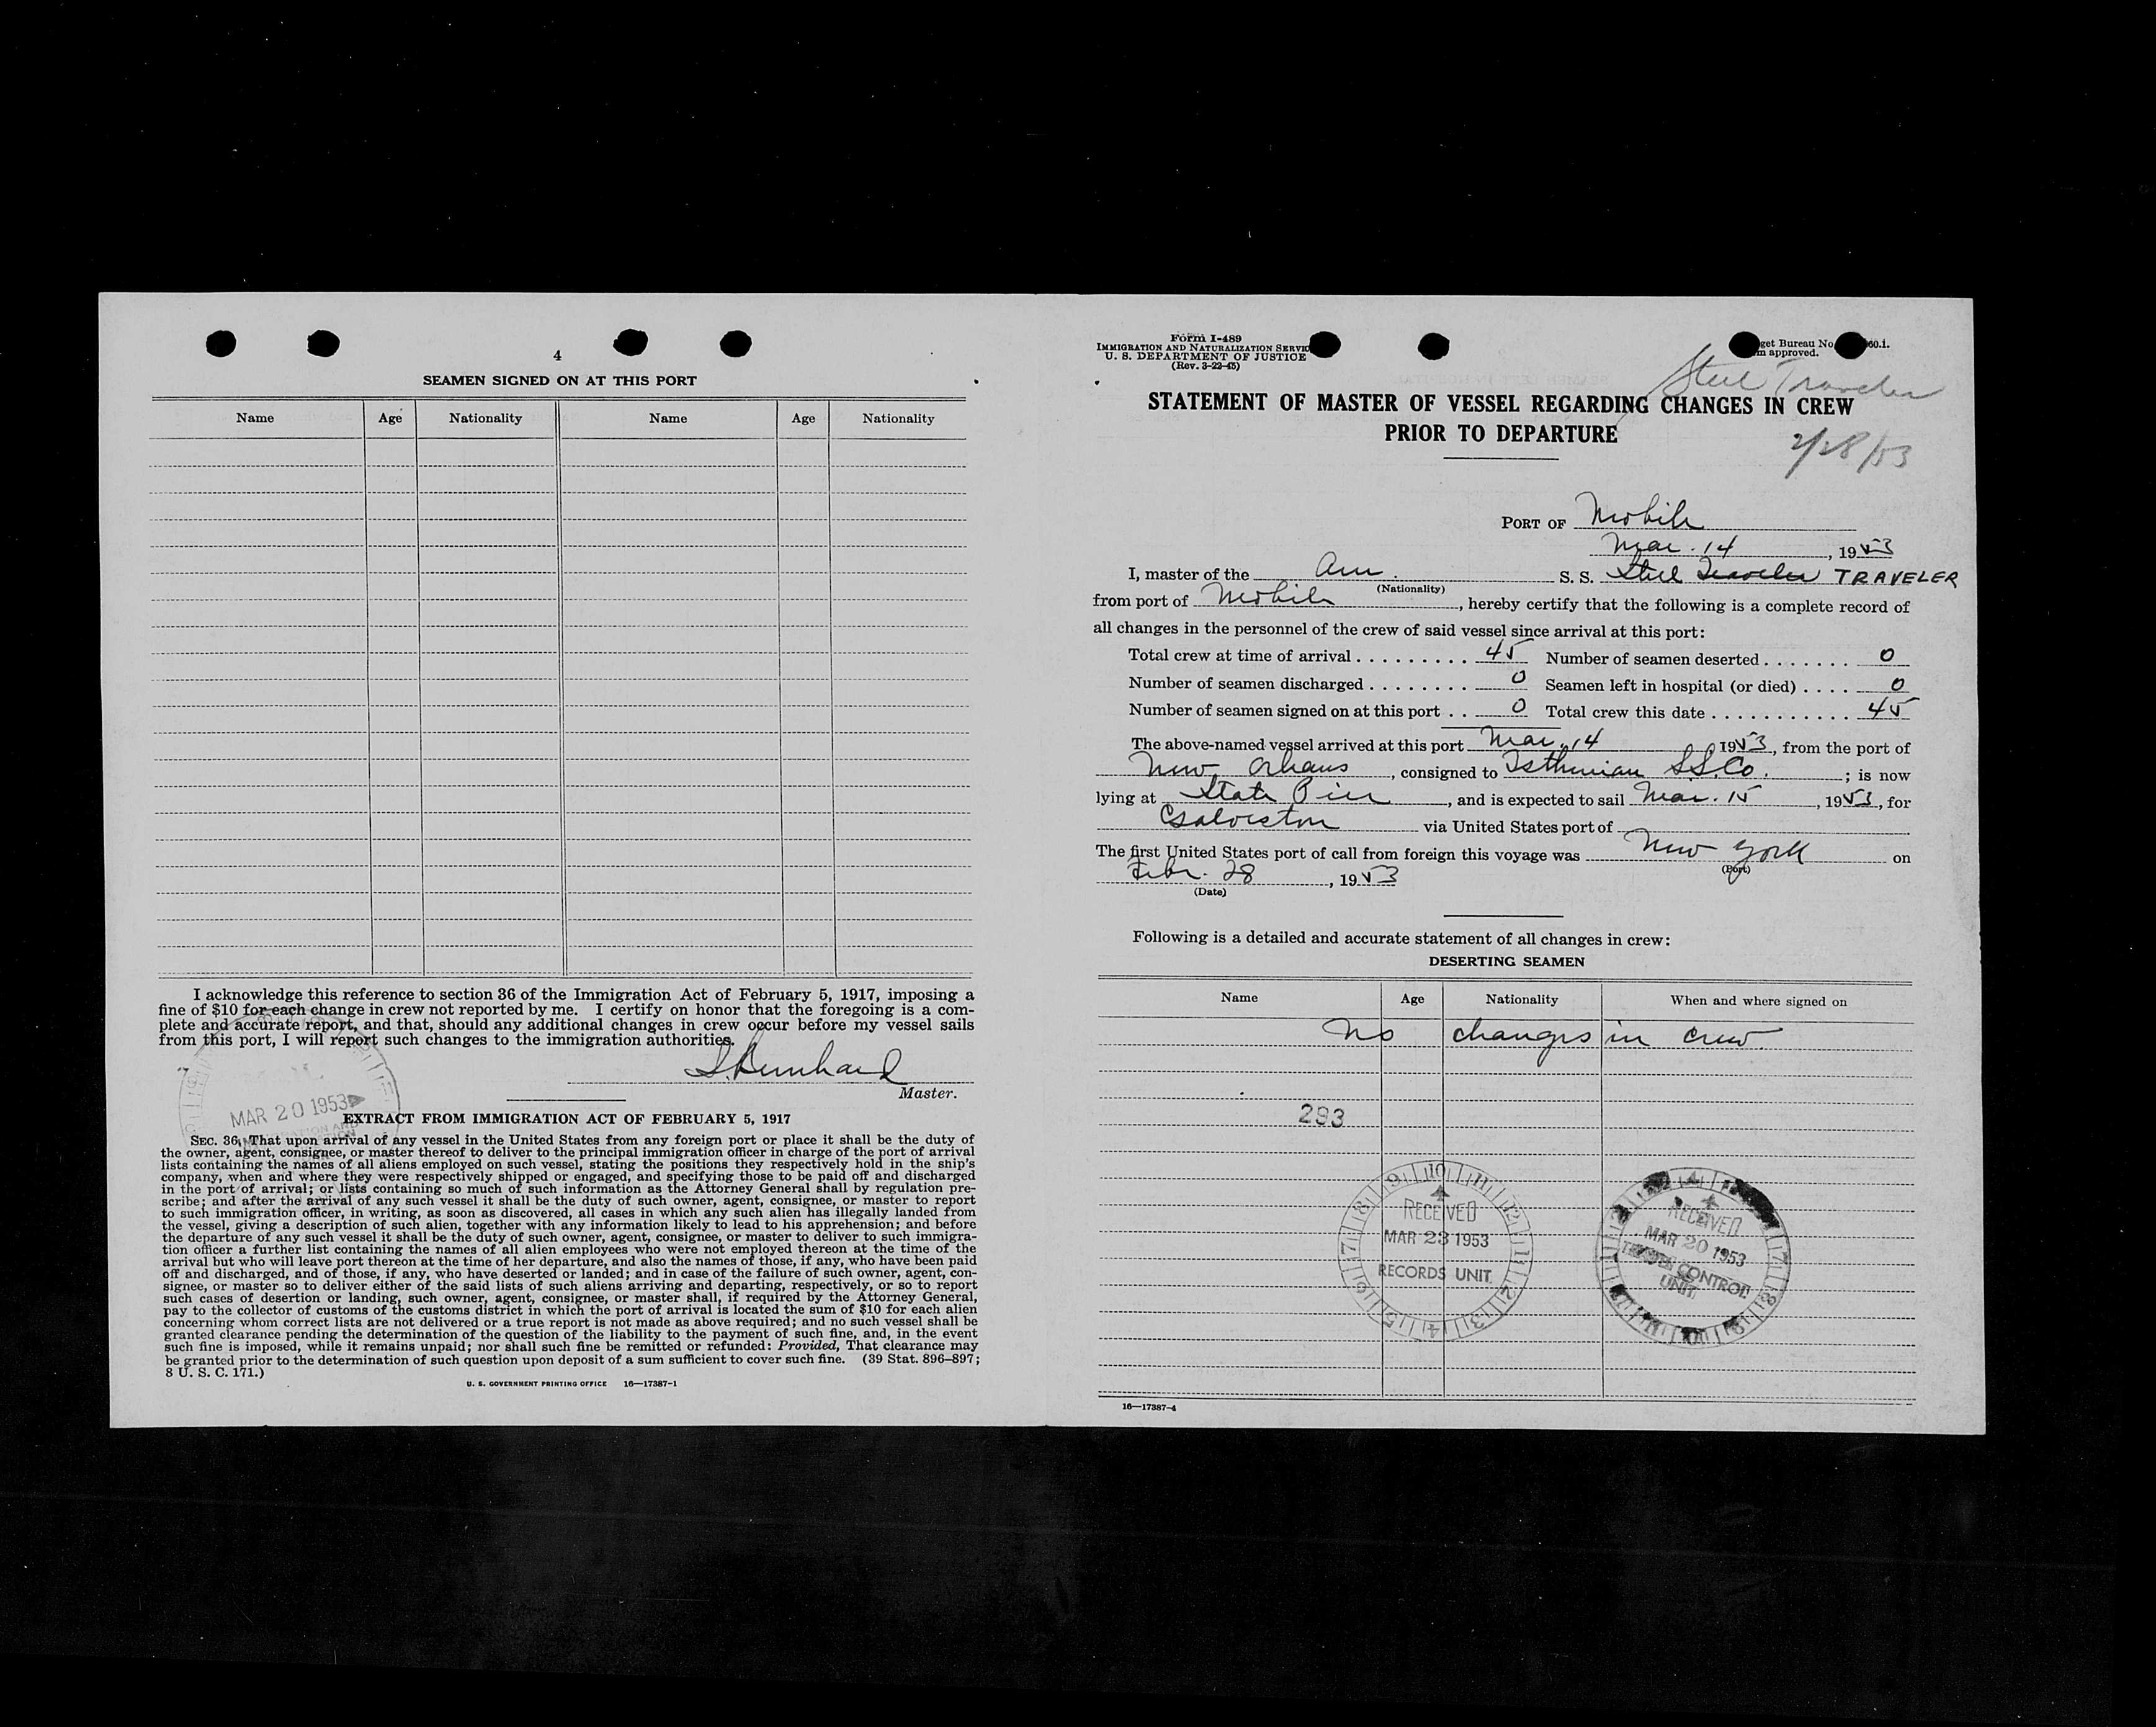 4
SEAMEN SIGNED ON AT THIS PORT
Name Age Nationality Name Age Nationality
I acknowledge this reference to section 36 of the Immigration Act of February 5, 1917, imposing a
fine of $10 for each change in crew not reported by me. I certify on honor that the foregoing is a com-
plete and accurate report, and that, should any additional changes in crew occur before my vessel sails
from this port, I will report such changes to the immigration authorities.
Master.
MAR 20 1953
EXTRACT FROM IMMIGRATION ACT OF FEBRUARY 5, 1917
SEC. 36. That upon arrival of any vessel in the United States from any foreign port or place it shall be the duty of
the owner, agent, consignee, or master thereof to deliver to the principal immigration officer in charge of the port of arrival
lists containing the names of all aliens employed on such vessel, stating the positions they respectively hold in the ship's
company, when and where they were respectively shipped or engaged, and specifying those to be paid off and discharged
in the port of arrival; or lists containing so much of such information as the Attorney General shall by regulation pre-
scribe; and after the arrival of any such vessel it shall be the duty of such owner, agent, consignee, or master to report
to such immigration officer, in writing, as soon as discovered, all cases in which any such alien has illegally landed from
the vessel, giving a description of such alien, together with any information likely to lead to his apprehension; and before
the departure of any such vessel it shall be the duty of such owner, agent, consignee, or master to deliver to such immigra-
tion officer a further list containing the names of all alien employees who were not employed thereon at the time of the
arrival but who will leave port thereon at the time of her departure, and also the names of those, if any, who have been paid
off and discharged, and of those, if any, who have deserted or landed; and in case of the failure of such owner, agent, con-
signee, or master so to deliver either of the said lists of such aliens arriving and departing, respectively, or so to report
such cases of desertion or landing, such owner, agent, consignee, or master shall, if required by the Attorney General,
pay to the collector of customs of the customs district in which the port of arrival is located the sum of $10 for each alien
concerning whom correct lists are not delivered or a true report is not made as above required; and no such vessel shall be
granted clearance pending the determination of the question of the liability to the payment of such fine, and, in the event
such fine is imposed, while it remains unpaid; nor shall such fine be remitted or refunded: Provided, That clearance may
be granted prior to the determination of such question upon deposit of a sum sufficient to cover such fine. (39 Stat. 896–897;
8 U. S. C. 171.)
U. S. GOVERNMENT PRINTING OFFICE 16—17387-1
Form I-489
IMMIGRATION AND NATURALIZATION SERVIC
U. S. DEPARTMENT OF JUSTICE
(Rev. 3-22-45)
get Bureau No. 60.1.
m approved.
Steel Traveler
STATEMENT OF MASTER OF VESSEL REGARDING CHANGES IN CREW
PRIOR TO DEPARTURE
2/28/53
PORT OF Mobile
Mar. 14, 1953
I, master of the Am. S. S. Steel Traveler TRAVELER
(Nationality)
from port of Mobile, hereby certify that the following is a complete record of
all changes in the personnel of the crew of said vessel since arrival at this port:
Total crew at time of arrival . . . . . . . . . 45 Number of seamen deserted . . . . . . . 0
Number of seamen discharged . . . . . . . . 0 Seamen left in hospital (or died) . . . . 0
Number of seamen signed on at this port . . 0 Total crew this date . . . . . . . . . . . 45
The above-named vessel arrived at this port Mar. 14 1953, from the port of
New Orleans, consigned to Isthmian S.S. Co.; is now
lying at State Pier, and is expected to sail Mar. 15, 1953, for
Galveston via United States port of
The first United States port of call from foreign this voyage was New York on
(Port)
Febr. 28, 1953
(Date)
Following is a detailed and accurate statement of all changes in crew:
DESERTING SEAMEN
Name Age Nationality When and where signed on
No changes in crew
293
RECEIVED
MAR 23 1953
RECORDS UNIT
RECEIVED
MAR 20 1953
CONTROL
UNIT
16—17387-4